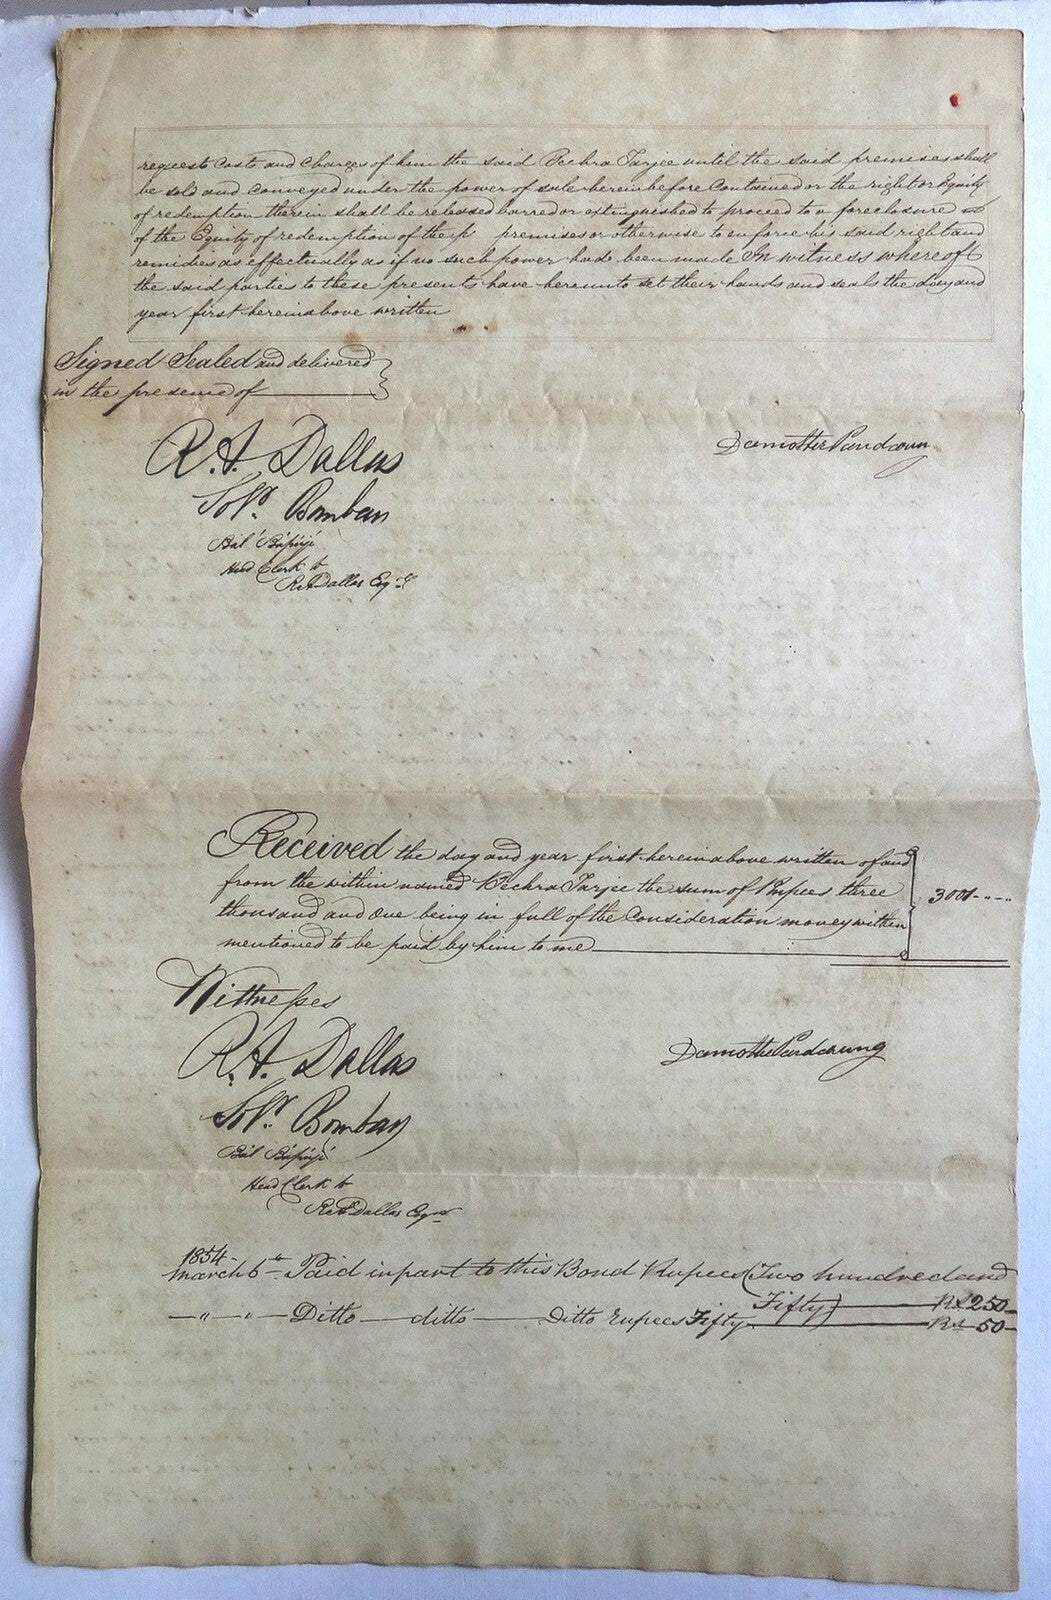 request Costs and Charges of him the said Pechra Tarjee until the said premises shall
be sold and conveyed under the power of sale hereinbefore Contained or the right or Equity
of redemption therein shall be released barred or extinguished to proceed to a foreclosure
of the Equity of redemption of the p premises or otherwise to enforce his said right and
remidies as effectually as if no such power had been made In witness whereof
the said parties to these presents have hereunto set their hands and seals the day and
year first hereinabove written
Signed Sealed and delivered
in the presence of
R. A. Dallas
Solr. Bombay
Damother Pandoorung
Bál Bápují
Head Clerk to
R A Dallas Esqr
Received the day and year first hereinabove written of and
from the within named Pechra Tarjee the sum of Rupees three
thousand and One being in full of the Consideration money within
mentioned to be paid by him to me
3001
Wittnesses
R. A. Dallas
Solr. Bombay
Damother Pandoorung
Bál Bápují
Head Clerk to
R A Dallas Esqr
1854
March 6th Paid in part to this Bond Rupees (Two hundred and
Fifty) Rs 250
" " Ditto ditto Ditto rupees Fifty Rs 50